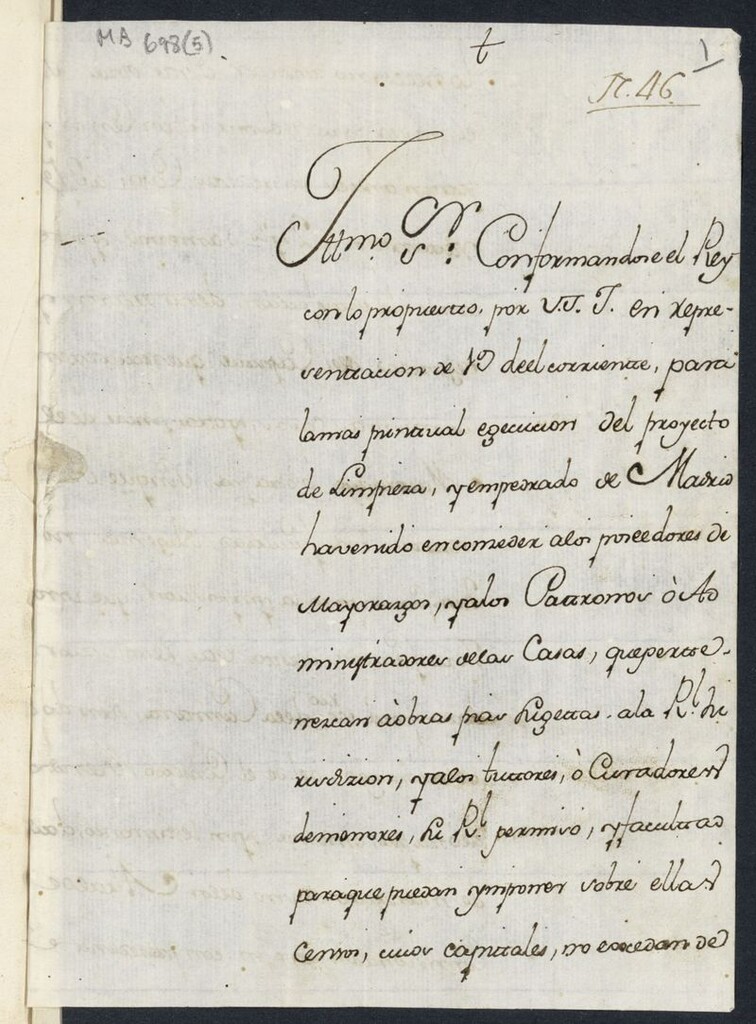 MA 698(5)
t
1
N. 46
Illmo. Sr. Conformandose el Rey
con lo propuesto, por V.S. I. en repre-
sentacion de 19 de el corriente, para
la mas puntual egecucion del proyecto
de Limpieza, y empedrado de Madrid
ha venido en conzeder a los poseedores de
Mayorazgos, y a los Patronos ò Ad
ministradores de las Casas, que perte-
nezcan à obras pias sugettas a la Rl. Ju
risdizion, y a los tuttores, ò Curadores
de menores, su Rl. permiso, y facultad
para que puedan ymponer sobre ellas
Censos, cuios capitales, no excedan de